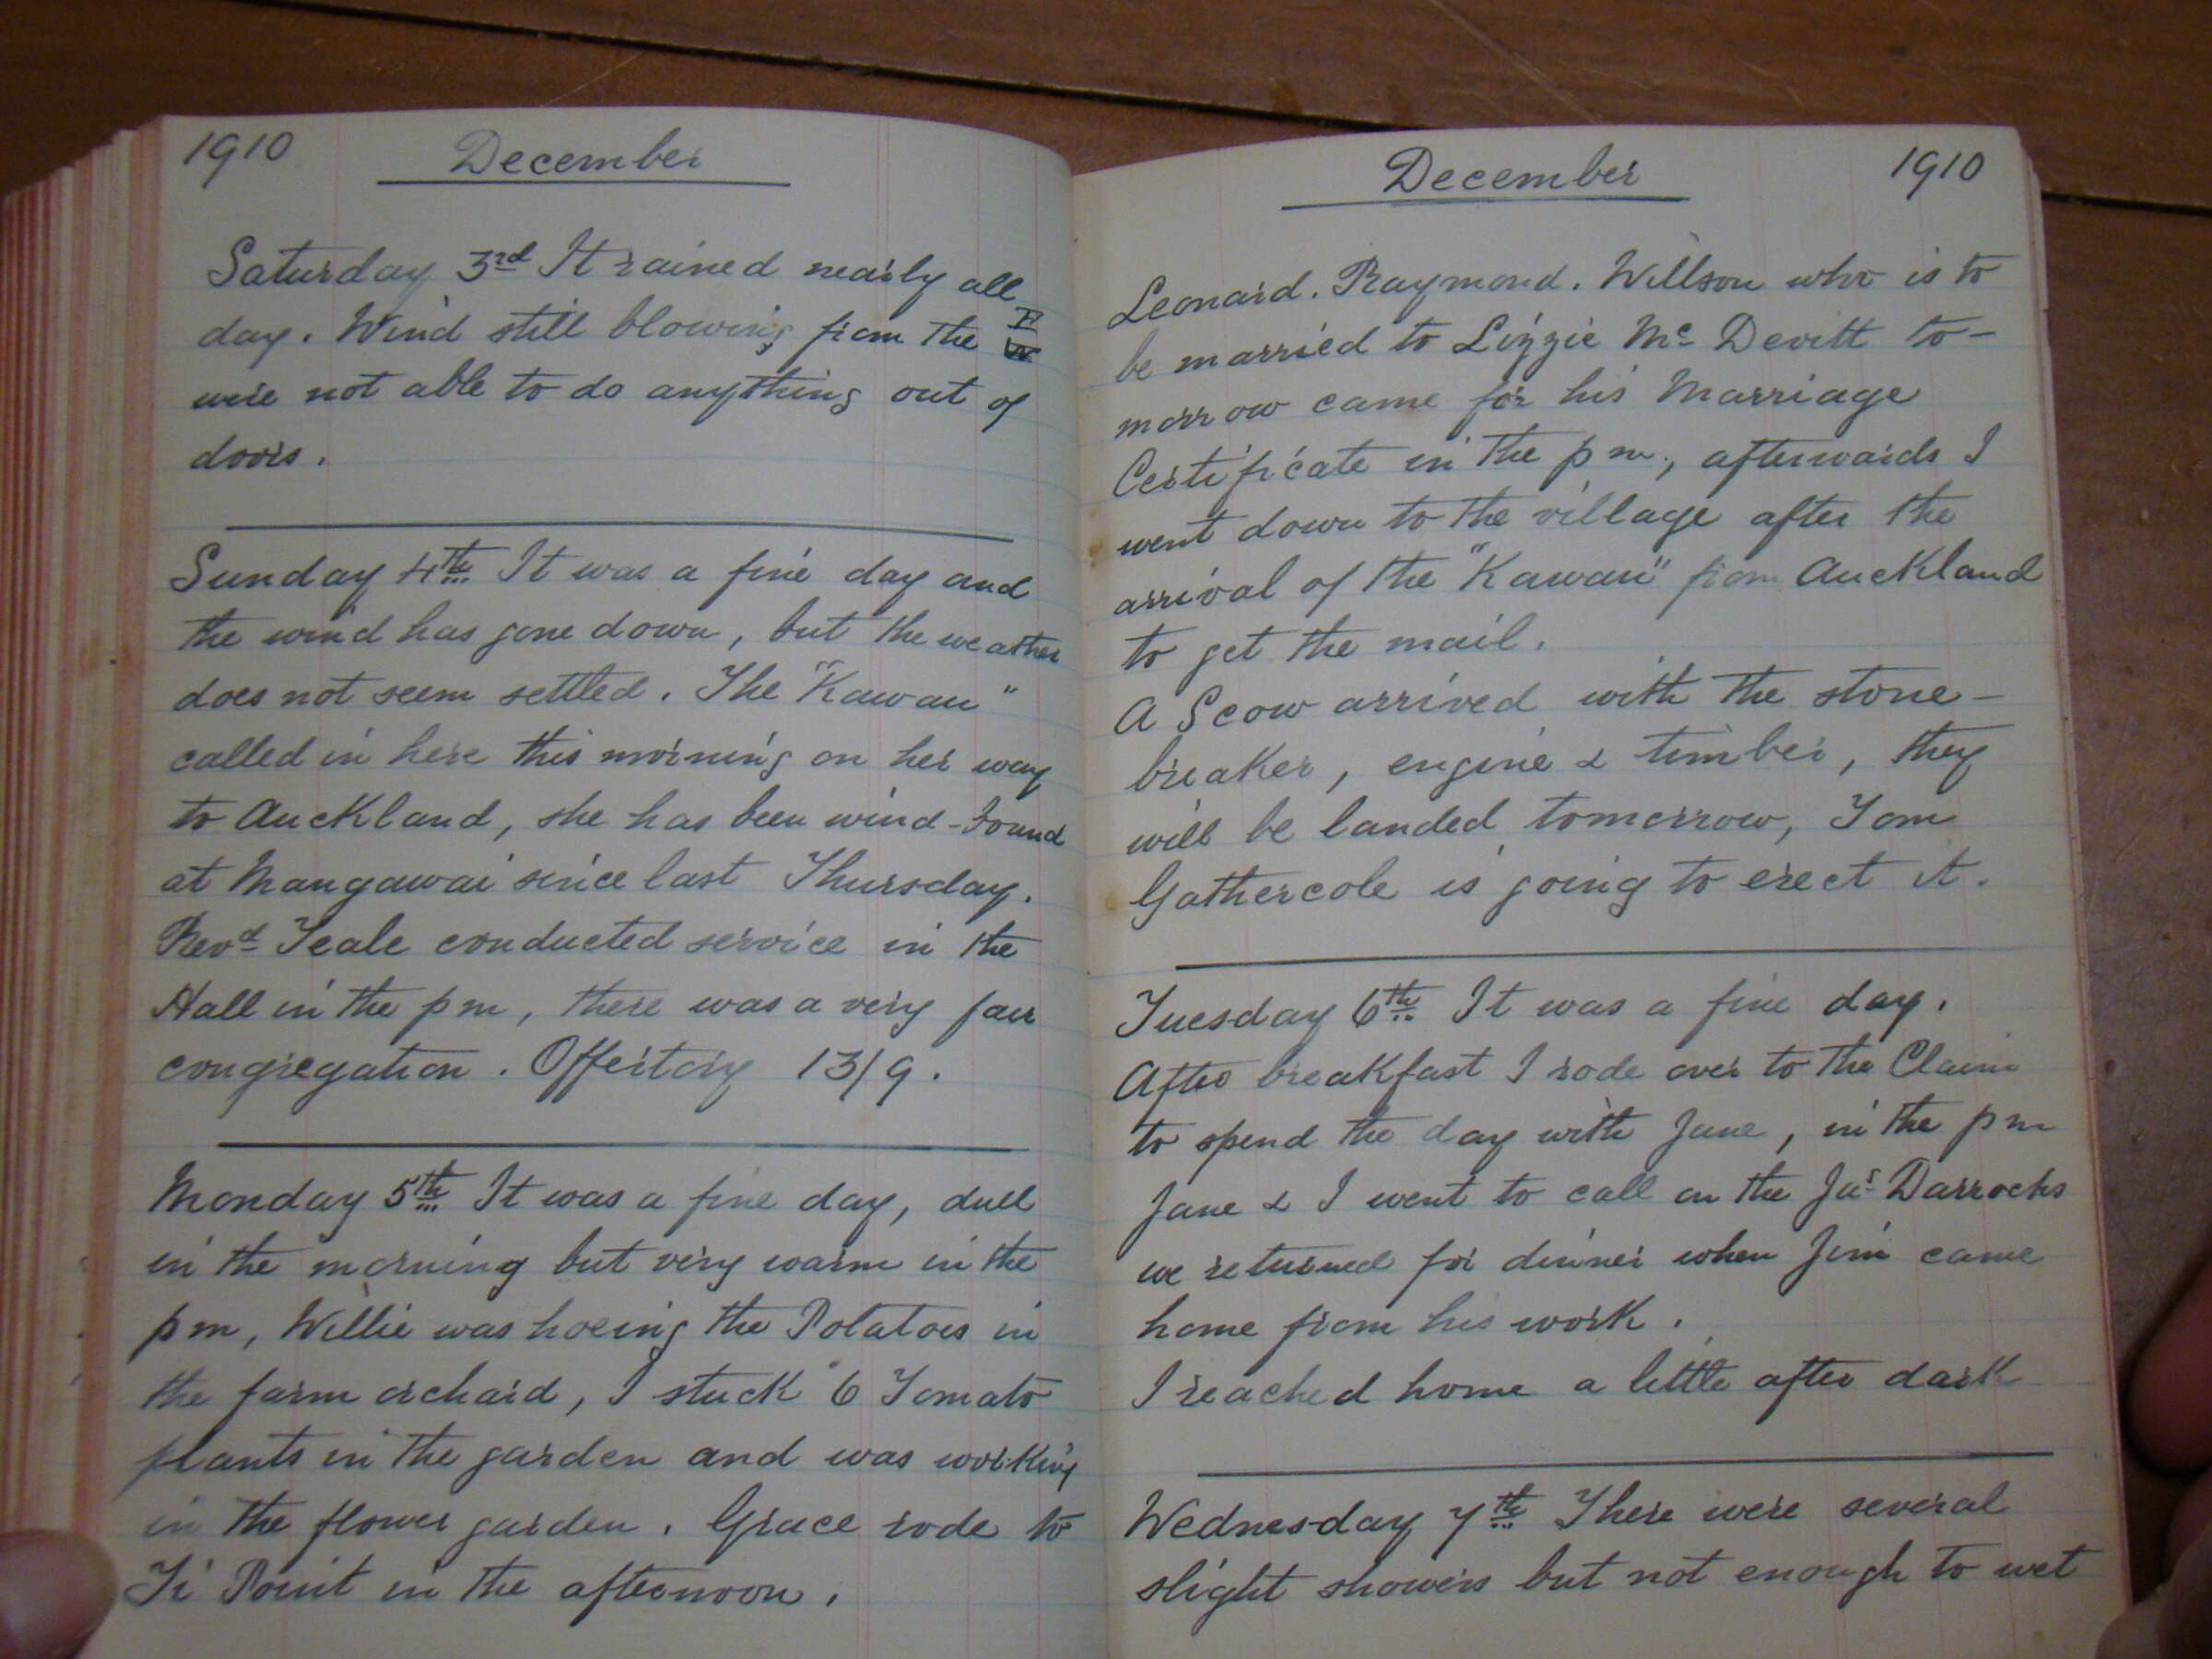 1910
December
Saturday 3rd It rained nearly all
day. Wind still blowing from the E
were not able to do anything out of
doors.
Sunday 4th It was a fine day and
the wind has gone down, but the weather
does not seem settled. The "Kawau"
called in here this morning on her way
to Auckland, she has been wind-bound
at Mangawai since last Thursday.
Revd Teale conducted service in the
Hall in the pm, there was a very fair
congregation. Offertory 13/9.
Monday 5th It was a fine day, dull
in the morning but very warm in the
pm, Willie was hoeing the Potatoes in
the farm orchard, I stuck 6 Tomato
plants in the garden and was working
in the flower garden. Grace rode to
Ti Point in the afternoon.
December
1910
Leonard. Raymond. Willson who is to
be married to Lizzie Mc Devitt to-
morrow came for his Marriage
Certificate in the pm., afterwards I
went down to the village after the
arrival of the "Kawau" from Auckland
to get the mail.
A Scow arrived with the stone-
breaker, engine & timber, they
will be landed tomorrow, Tom
Gathercole is going to erect it.
Tuesday 6th It was a fine day.
After breakfast I rode over to the Claim
to spend the day with Jane, in the pm
Jane & I went to call on the Jas Darrochs
we returned for dinner when Jim came
home from his work.
I reached home a little after dark
Wednesday 7th There were several
slight showers but not enough to wet